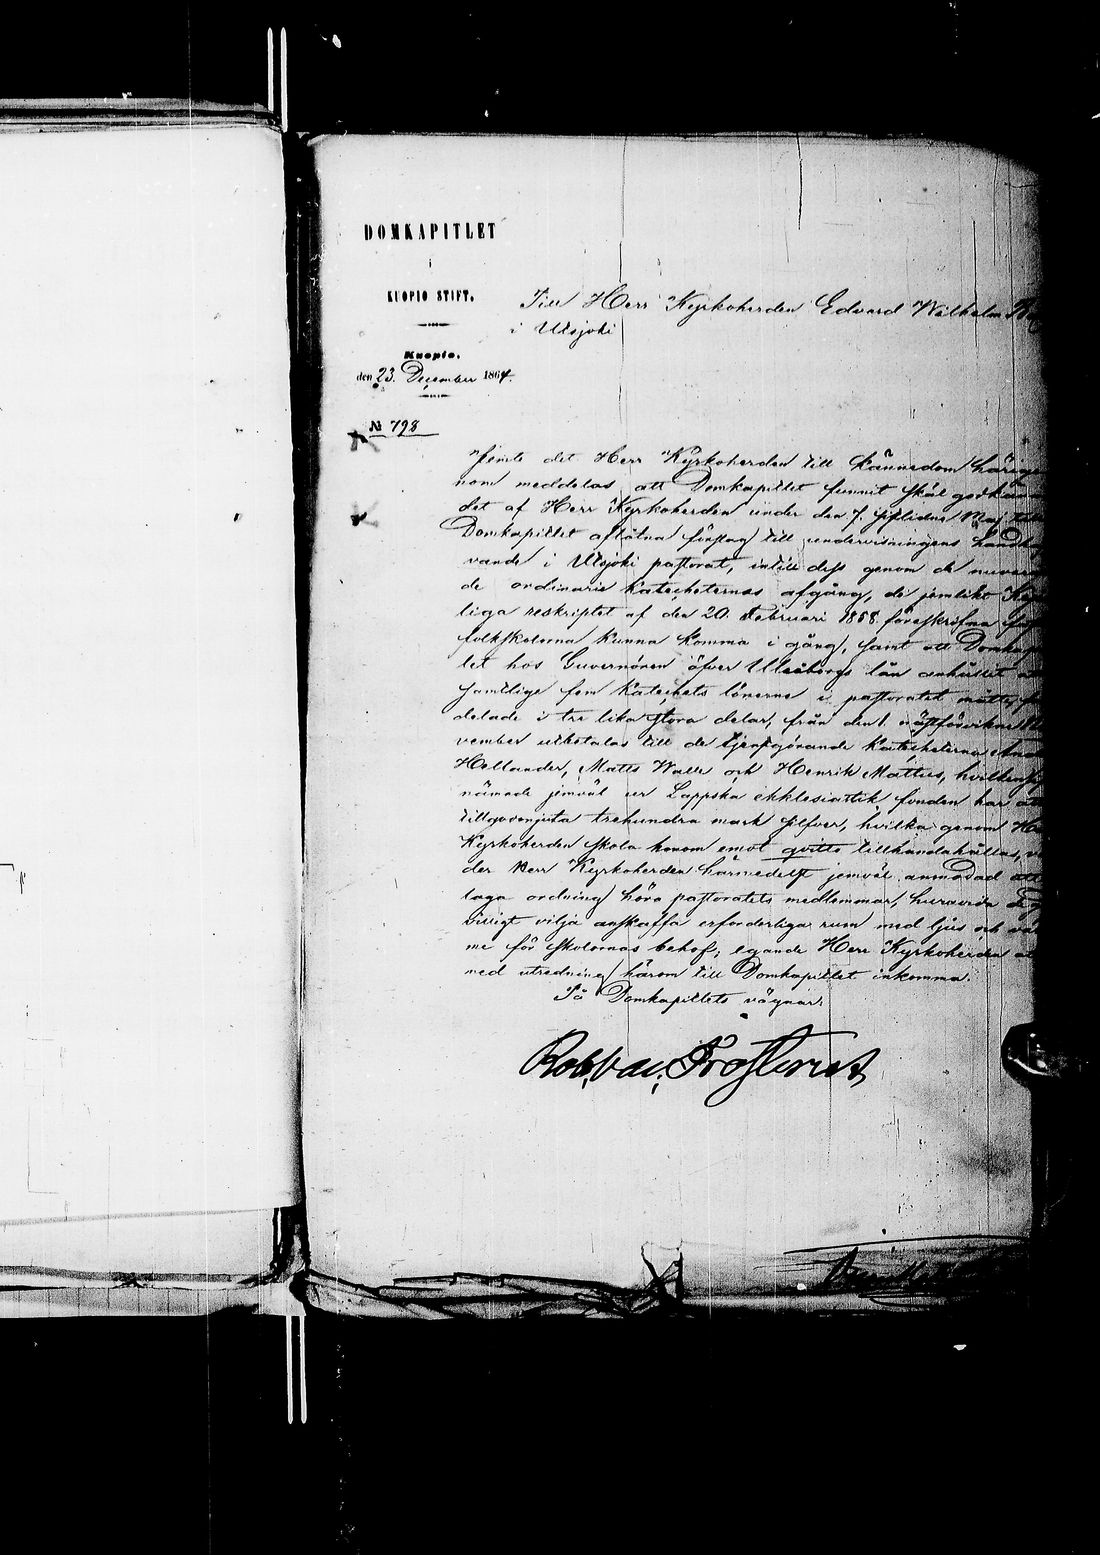 DOMKAPITLET
i
KUOPIO STIFT.
Till Herr Kyrkoherden Edvard Wilhelm
i Utsjoki
Kuopio.
den 23. December 1864.
№ 798
Jemte det Herr Kyrkoherden till kännedom härige
nom meddelas att Domkapitlet funnit skäl godkänna
det af Herr Kyrkoherden under den 7. sistlidne Maj till
Domkapitlet aflåtna förslag till undervisningens handha
vande i Utsjoki pastorat, intill dess genom de nuvaran
de ordinarie Katecheternas afgång, de jemlikt Kejser
liga reskriptet af den 20. Februari 1858 föreskrifna
folkskolorna kunna komma i gång, samt att Domkapit
let hos Guvernören öfver Uleåborgs län anhållit att
samtlige fem Katechets lönerne i pastoratet måtte, för
delade i tre lika stora delar, från den 1. nästförvikne No
vember utbetalas till de tjenstgörande Katecheterne
Hellander, Matts Walle och Henrik Mattus, hvilken sist
nämnde jemväl ur Lappska ecklesiastik fonden har att
tillgodonjuta trehundra mark silfver, hvilka genom Herr
Kyrkoherden skola honom emot qvitto tillhandahållas,
der Herr Kyrkoherden härmedelst jemväl anmodad att i
laga ordning höra pastoratets medlemmar, huruvida de
villigt vilja anskaffa erforderliga rum med ljus och vär
me för skolornas behof; egande Herr Kyrkoherden att
med utredning härom till Domkapitlet inkomma.
På Domkapitlets vägnar:
Rob. Val. Frosterus